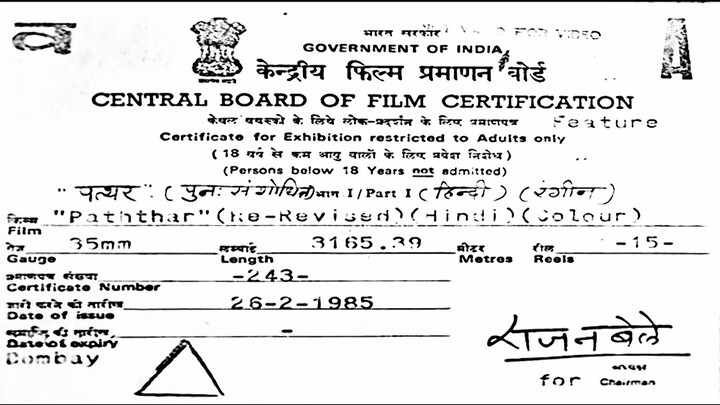 व A
भारत सरकार FOR VIDEO
GOVERNMENT OF INDIA
केन्द्रीय फिल्म प्रमाणन बोर्ड
CENTRAL BOARD OF FILM CERTIFICATION
केवल वयस्को के लिये लोक-प्रदर्शन के लिए प्रमाणपत्र Feature
Certificate for Exhibition restricted to Adults only
(18 वर्ष से कम आयु वालों के लिए प्रवेश निशेध)
(Persons below 18 Years not admitted)
"पत्थर" (पुनः संशोधित) भाग I/Part I (हिन्दी) (रंगीन)
फिल्म "Paththar" (Re-Revised) (Hindi) (Colour)
Film
गेज 35mm लम्बाई 3165.39 मीटर रील -15-
Gauge Length Metres Reels
प्रमाणपत्र संख्या -243-
Certificate Number
जारी करने की तारीख 26-2-1985
Date of issue
समाप्ति की तारीख -
Date of expiry
Bombay
राजन बेले
अध्यक्ष
for Chairman